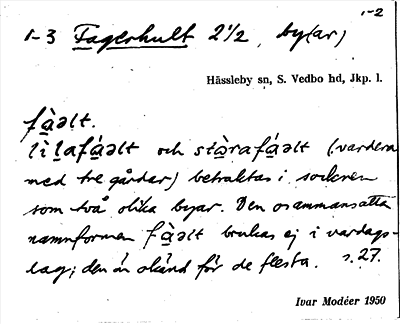 1-2
1-3 Fagerhult 2 1/2, by(ar)
Hässleby sn, S. Vedbo hd, Jkp. l.
fà̱əlt.
lìḻafá̱əlt och stàrafá̱əlt (vardera
med tre gårdar) betraktas i socknen
som två olika byar. Den osammansatta
namnformen fà̱əlt brukas ej i vardags-
lag; den är okänd för de flesta. s. 27.
Ivar Modéer 1950